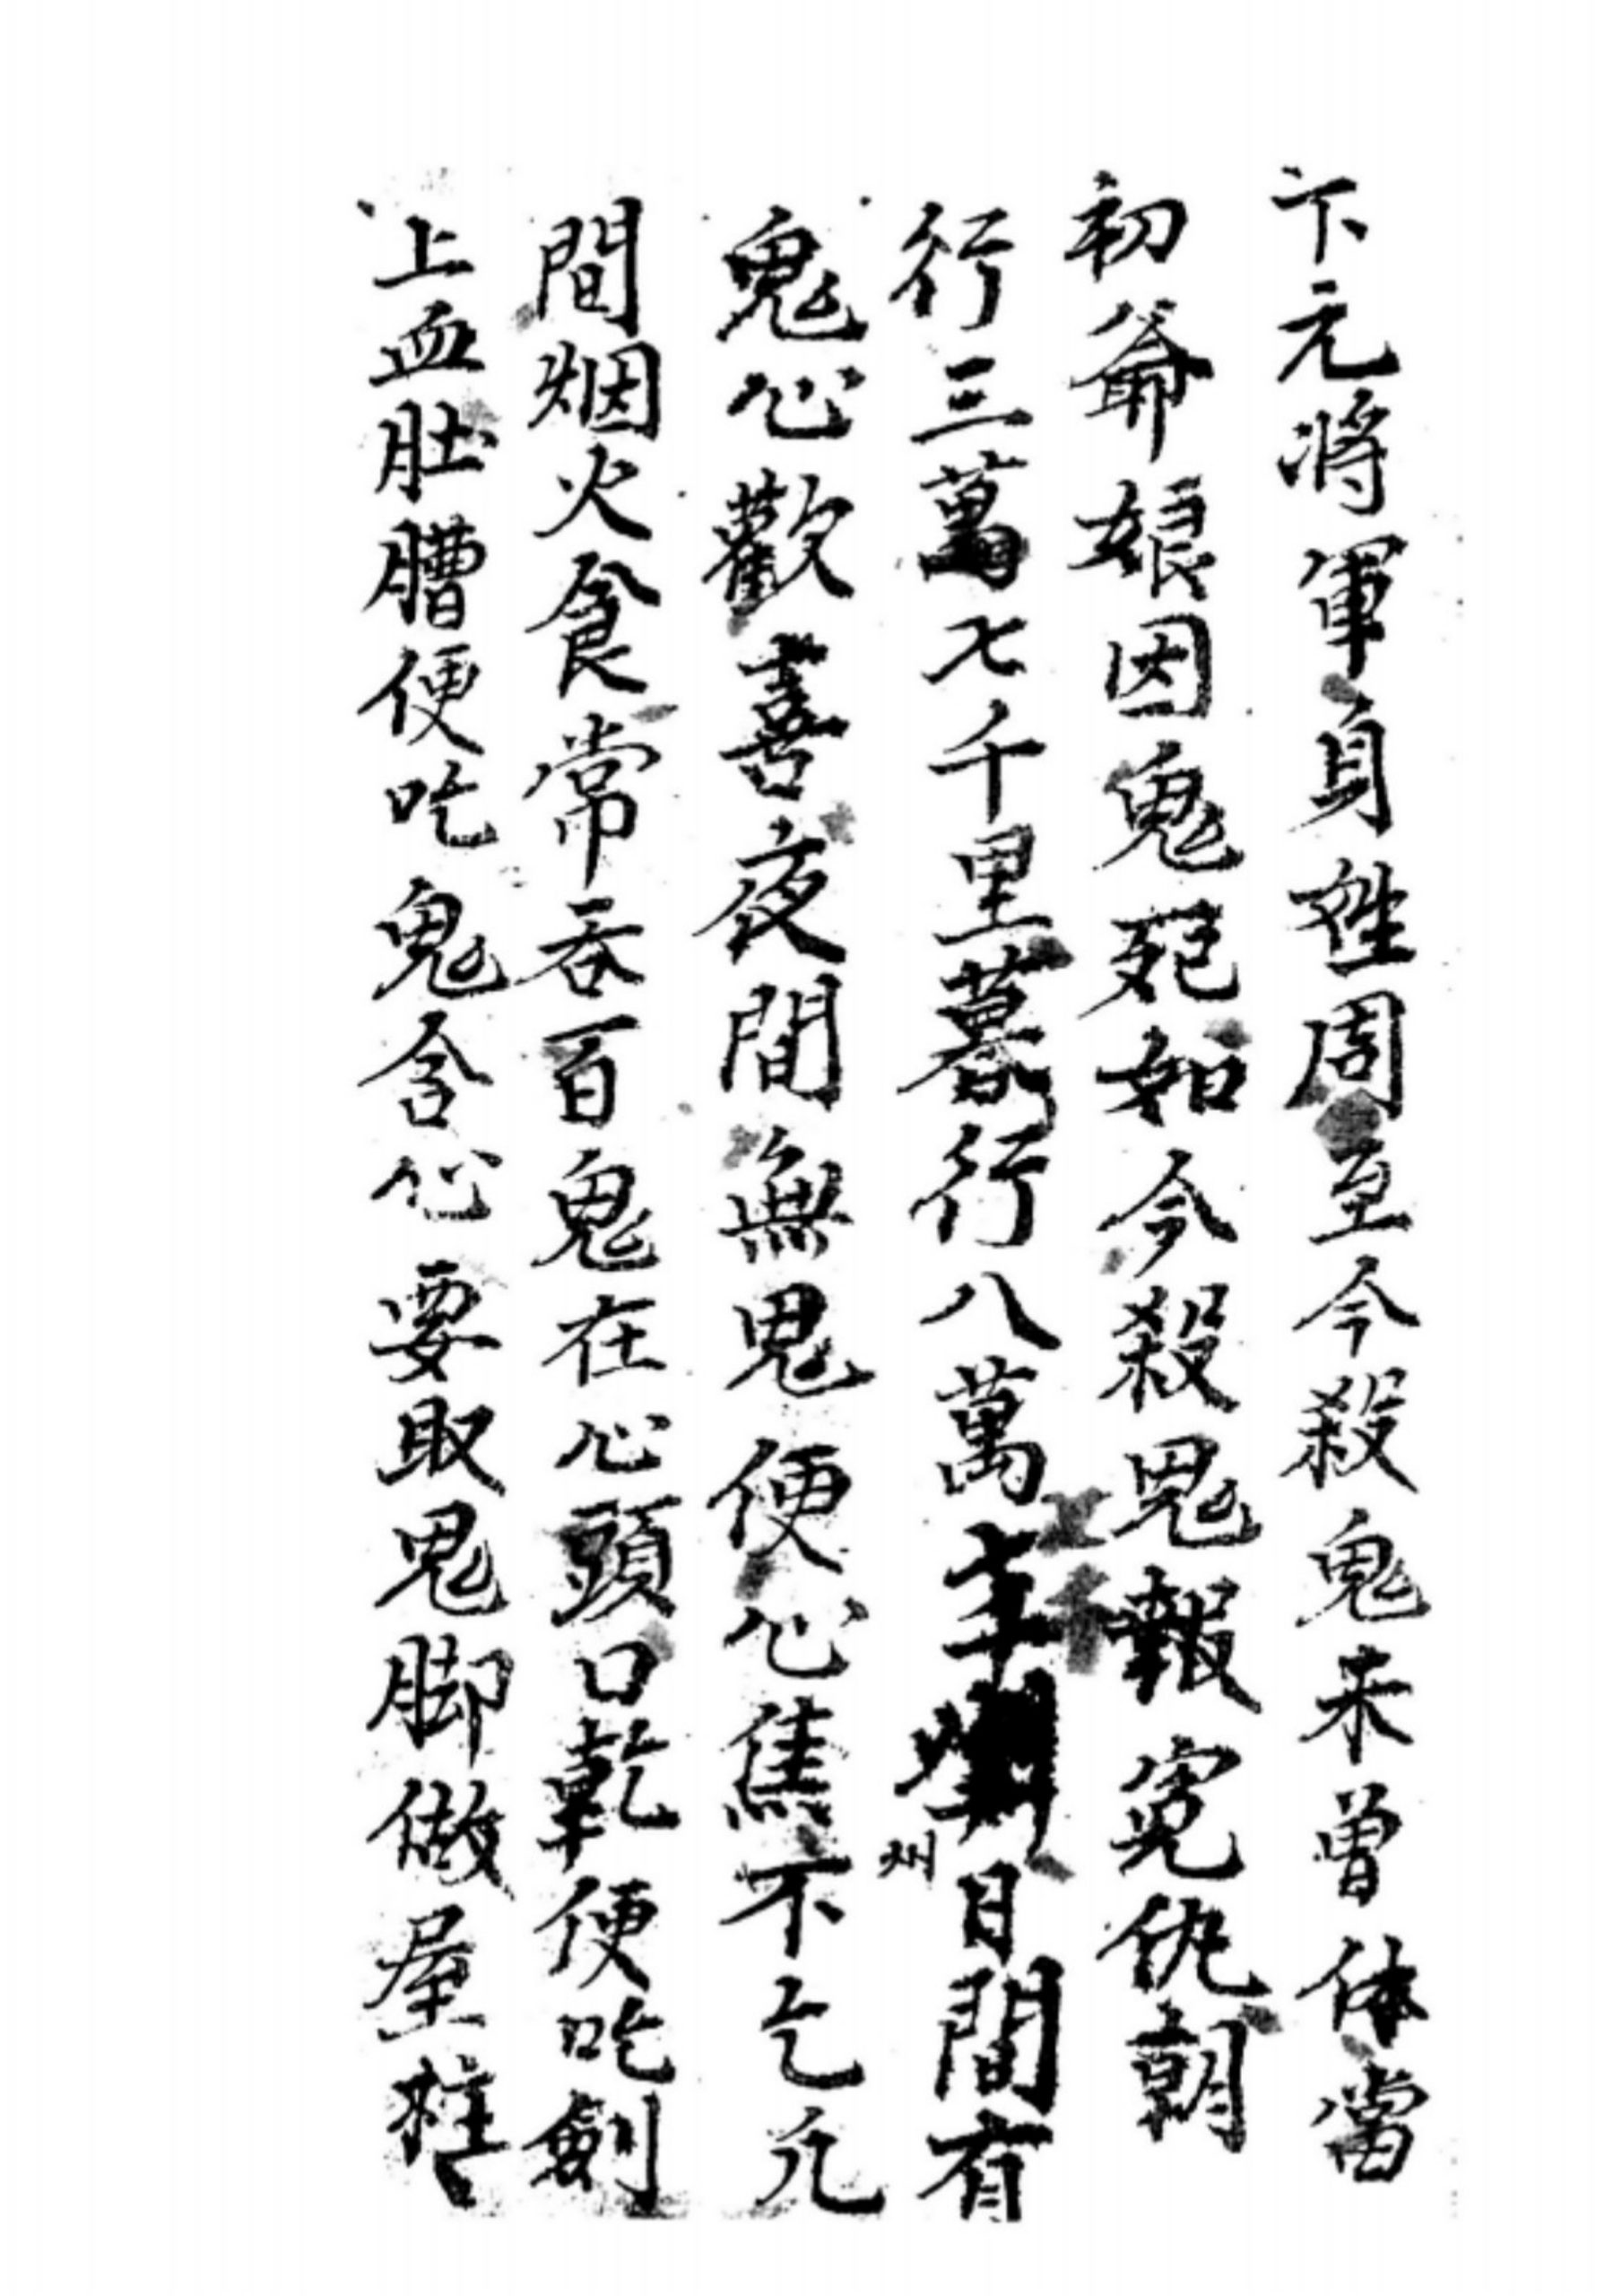 卞元將軍自姓周至今殺鬼未曾休當
初爺娘因鬼死如今殺鬼報冤仇朝
行三萬七千里暮行八萬州日間有
鬼心歡喜夜間無鬼便心焦不乞凢
間烟火食常吞百鬼在心頭口乾便吃劍
上血肚膤便吃鬼含心要取鬼脚做屋柱